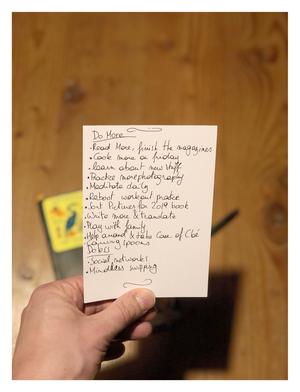 Do More
• Read More, finish the magazines
• Cook more on friday
• learn about new stuff
• Practice more photography
• Meditate daily
• Reboot workout practice
• Sort Pictures for 2019 book
• Write more & translate
• Play with family
• Help around & take Care of Cbé
• Carving spoons
Do less
• Social networks
• Mindless swiping